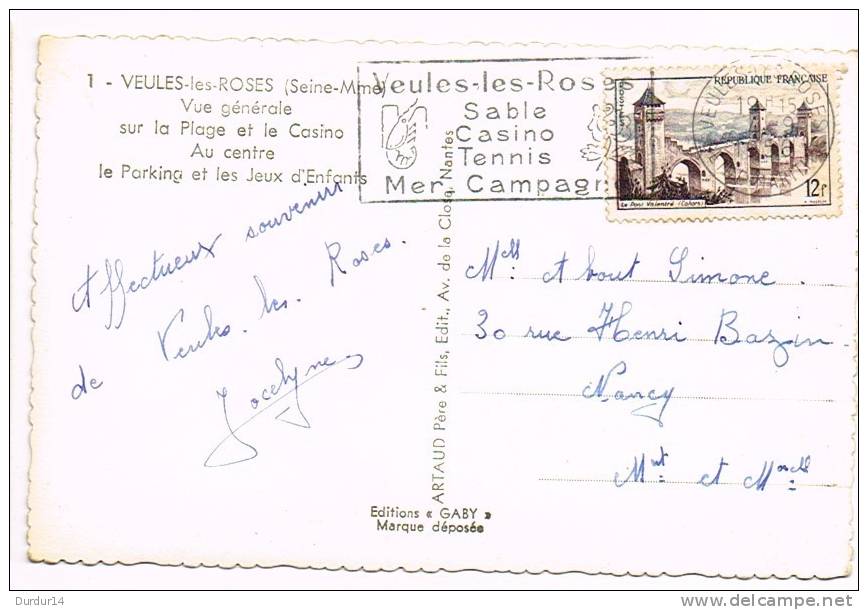 1 - VEULES-les-ROSES (Seine-Mme)
Vue générale
sur la Plage et le Casino
Au centre
le Parking et les Jeux d'Enfants
Veules-les-Roses
Sable
Casino
Tennis
Mer. Campagn
REPUBLIQUE FRANÇAISE
Le Pont Valentré (Cahors)
12f
Affectueux souvenir
de Veules. les. Roses.
Jocelyne
ARTAUD Père & Fils, Edit., Av. de la Close, Nantes
Mell About Simone.
30 rue Henri Bazin.
Nancy
Mrt et Moselle
Editions « GABY »
Marque déposée
Durdur14
delcampe.net